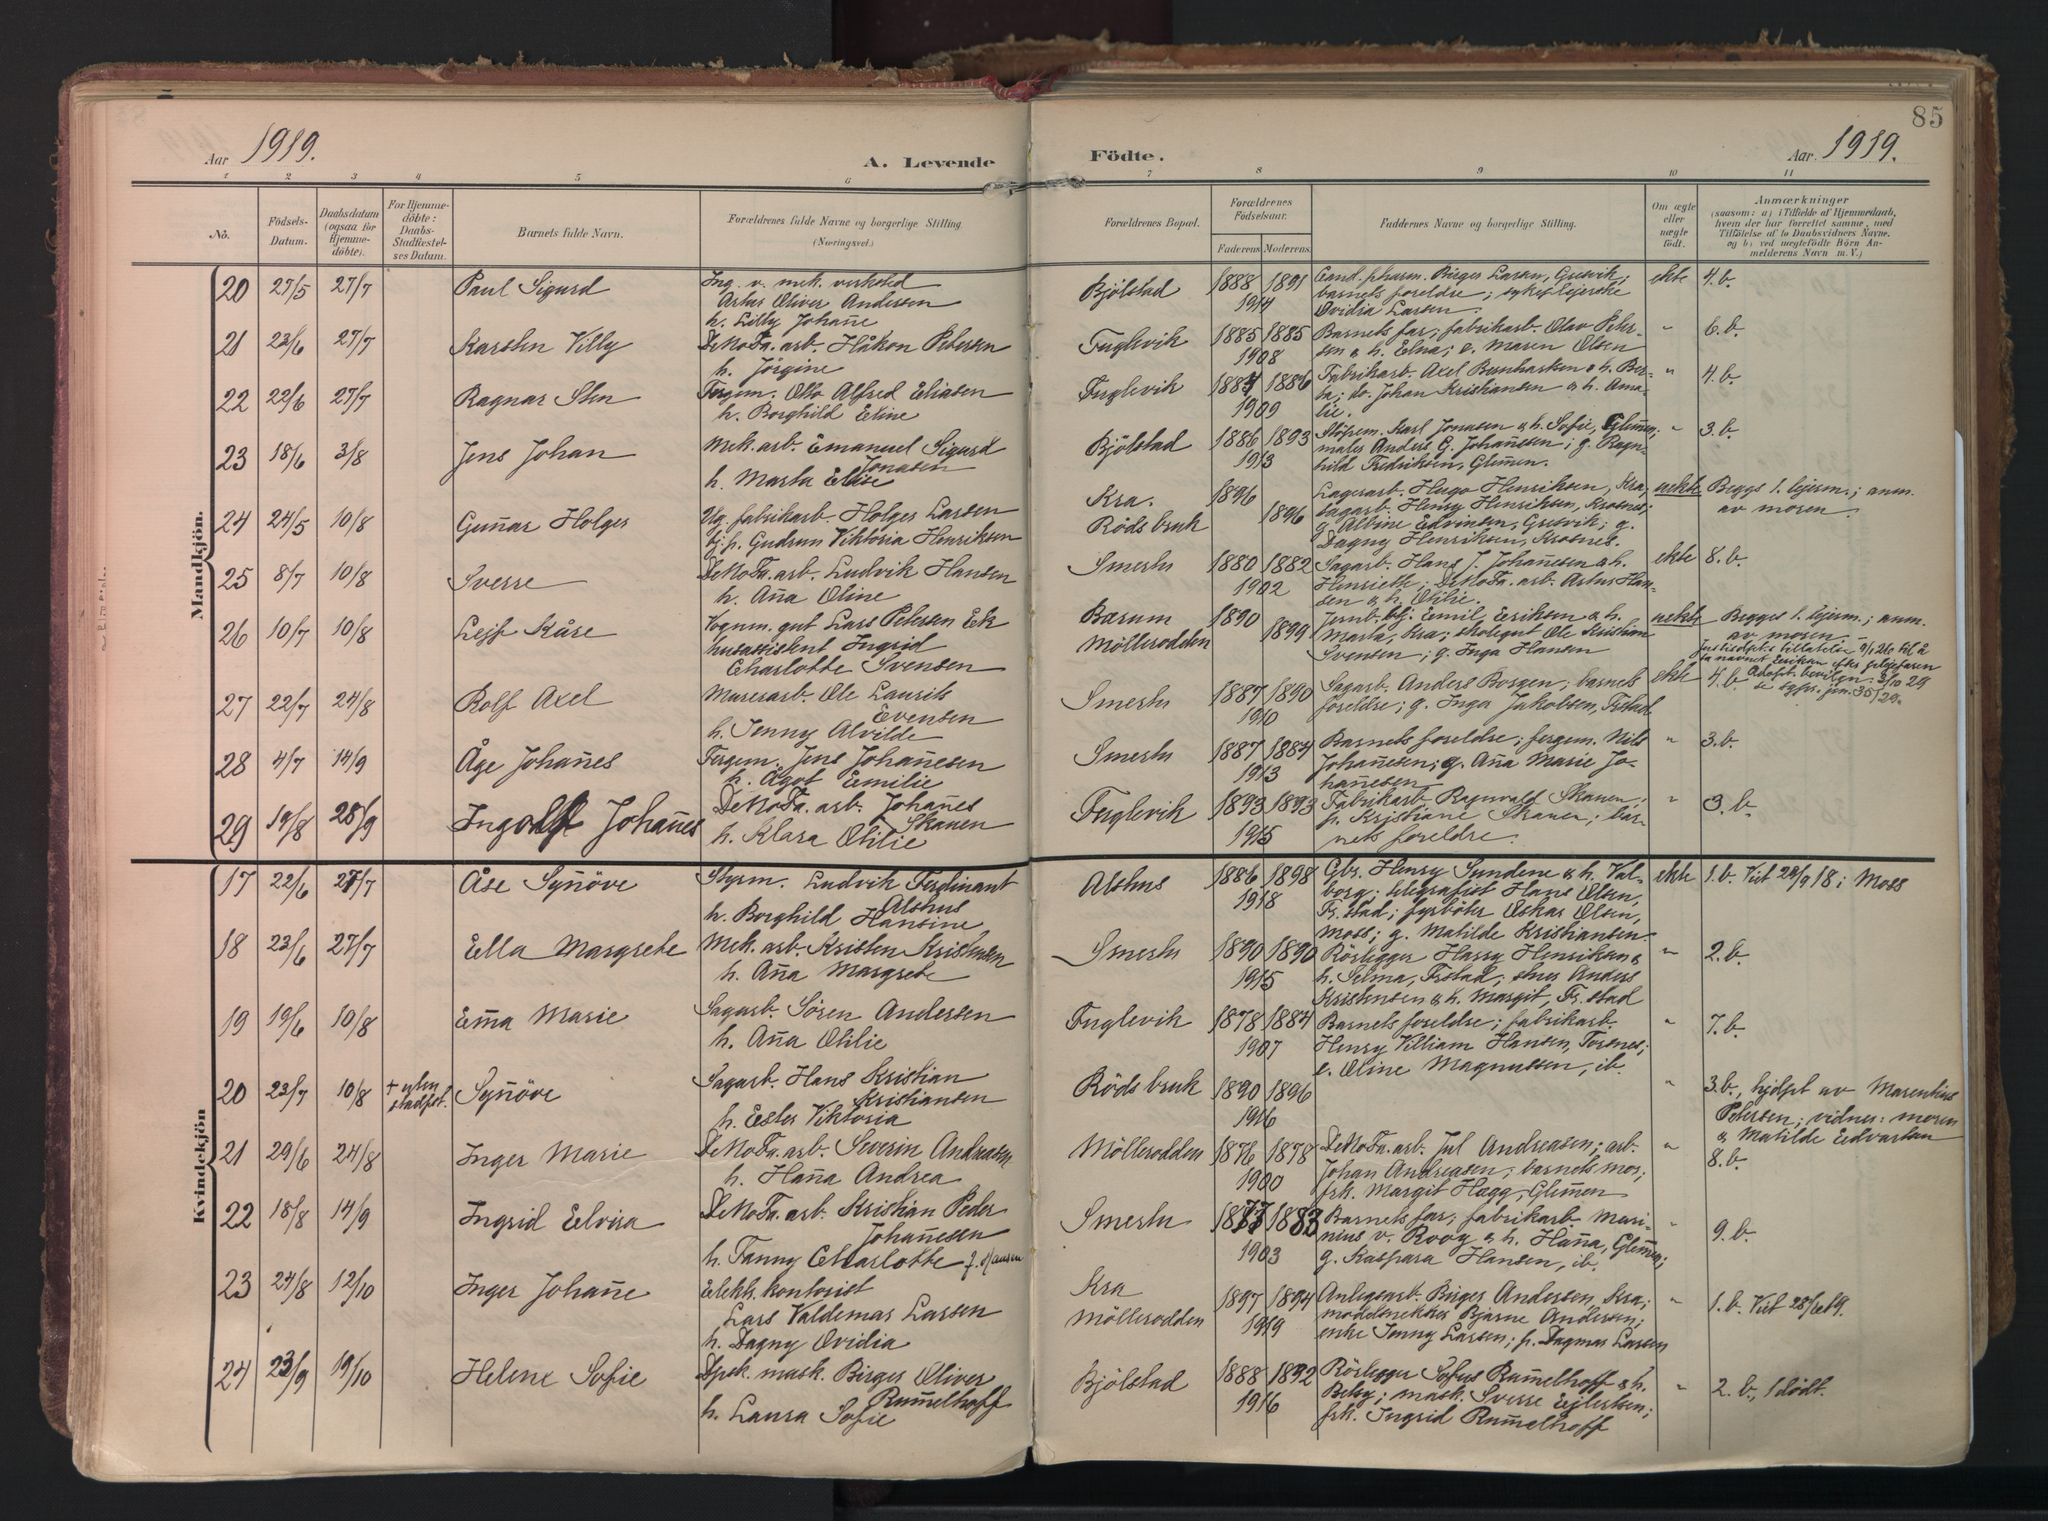 85
Aar 1919.
A. Levende
Födte.
Aar 1919.
1 2 3 4 5 6 7 8 9 10 11
No.
Födsels-Datum.
Daabsdatum (ogsaa for Hjemmedöbte).
For Hjemmedöbte: Daabs-Stadfæstelses Datum.
Barnets fulde Navn.
Forældrenes fulde Navne og borgerlige Stilling. (Næringsvei.)
Forældrenes Bopæl.
Forældrenes Födselsaar.
Faderens Moderens
Faddernes Navne og borgerlige Stilling.
Om ægte eller uægte födt.
Anmærkninger
(saasom: a) i Tilfælde af Hjemmedaab, hvem der har forrettet samme, med Tilföielse af to Daabsvidners Navne, og b) ved uægtefödte Börn Anmelderens Navn m. V.)
Mandkjön.
20 27/5 27/7 Paul Sigurd
Ing. v. mek. verksted
Oliver Andersen
h. Lilly Johanne
Bjölstad 1888 1891
1914
Cand. pharm. Birger Larsen, Gresvik;
barnets foreldre; sykepleierske
Ovidia Larsen.
ekte 4. b.
21 23/6 27/7 Karsten Villy
DeNoFa. arb. Håkon Petersen
h. Jörgine
Fuglevik 1885 1885
1908
Barnets far; fabrikarb. Olav Petersen & h. Elna; e. Maren Olsen
" 6. b.
22 22/6 27/7 Ragnar Sten
Fergem. Otto Alfred Eliasen
h. Borghild Eline
Fuglevik 1887 1886
1909
Fabrikarb. Axel Bernhartsen & h. Berta; do. Johan Kristiansen & h. Amalie.
" 4. b.
23 18/6 3/8 Jens Johan
Mek. arb. Emanuel Sigurd
Jonasen
h. Marta Elise
Bjölstad 1886 1893
1913
Karl Jonasen & h. Sofie, Glemmen,
Anders G. Johannesen; g. Ragnhild Fredriksen, Glemmen.
" 3. b.
24 24/5 10/8 Gunnar Holger
Ug. fabrikarb. Holger Larsen
tj. p. Gudrun Viktoria Henriksen
Kra.
Röds bruk
1896
1896
Lagerarb. Hugo Henriksen, Kra;
Sagarb. Henry Henriksen, Krosnes;
g. Albine Edvinsen, Gresvik; g.
Dagny Henriksen, Krosnes.
uekte Begges 1. leierm.; anm.
av moren.
25 8/7 10/8 Sverre
DeNoFa. arb. Ludvik Hansen
h. Anna Oline
Smertu 1880 1882
1902
Sagarb. Hans J. Johannesen & h.
Henriette; DeNoFa. arb. Artur Hansen & h. Otilie.
ekte 8. b.
26 10/7 10/8 Lejf Kåre
Vognm. gut Lars Petersen Ek
husassistent Ingrid
Charlotte Svensen
Bærum
Möllerodden
1890
1899
Jernb. btj. Emil Eriksen & h.
Marta, Kra; skolegut Ole Kristian
Svensen; g. Inga Hansen
uekte Begges 1. leierm.; anm.
av moren.
27 22/7 24/8 Rolf Axel
Murerarb. Ole Laurits
Evensen
h. Jenny Alvilde
Smertu 1887 1890
1910
Sagarb. Anders Borgen; barnets
foreldre; g. Inga Jakobsen, Frstad
ekte 4. b.
28 4/7 14/9 Åge Johannes
Fergem. Jens Johannesen
h. Ågot Emilie
Smertu 1887 1884
1913
Barnets foreldre; fergem. Nils
Johannesen; g. Anna Marie Johannesen
" 3. b.
29 19/8 28/9 Ingolf Johannes
DeNoFa. arb. Johannes
Skauen
h. Klara Otilie
Fuglevik 1893 1893
1915
Fabrikarb. Ragnvald Skauen;
p. Kristiane Skauen; barnets foreldre.
" 3. b.
Kvindekjön
17 22/6 27/7 Åse Synnöve
Styrm. Ludvik Ferdinant
Alshus
h. Borghild Hansine
Alshus 1886 1898
1918
Gbr. Henry Sundene & h. Valborg; telegrafist Hans Olsen,
Fr.stad; fyrböter Oskar Olsen,
Moss; g. Matilde Kristiansen.
ekte 1. b. Viet 28/9 18 i Moss
18 23/6 27/7 Ella Margrete
Mek. arb. Kristen Kristensen
h. Anna Margrete
Smertu 1890 1890
1915
Rörlegger Harry Henriksen &
h. Selma, Frstad; Anders
Kristensen & h. Margit, Fr.stad
" 2. b.
19 19/6 10/8 Emma Marie
Sagarb. Sören Andersen
h. Anna Otilie
Fuglevik 1878 1884
1907
Barnets foreldre; fabrikarb.
Henry Villiam Hansen, Torsnes;
e. Oline Magnussen, ib.
" 7. b.
20 23/7 10/8 + uten stadfest. Synnöve
Sagarb. Hans Kristian
Kristiansen
h. Ester Viktoria
Röds bruk 1890 1896
1916
" 3. b., hjdpt av Marentius
Petersen; vidner: moren
& Matilde Edvartsen
21 29/6 24/8 Inger Marie
DeNoFa. arb. Severin Andreasen
h. Hanna Andrea
Möllerodden 1876 1878
1900
DeNoFa. arb. Jul Andreasen; arb.
Johan Andreasen; barnets mor;
frk. Margit Hægg, Glemmen
" 8. b.
22 18/8 14/9 Ingrid Elvira
DeNoFa. arb. Kristian Peder
Johannesen
h. Fanny Charlotte f. Hansen
Smertu 1877 1883
1903
Barnets far; fabrikarb. Marinius v. Rooy & h. Hanna, Glemmen;
g. Kaspara Hansen, ib.
" 9. b.
23 24/8 12/10 Inger Johanne
Elekt. kontorist
Lars Valdemar Larsen
h. Dagny Ovidia
Kra
Möllerodden
1897 1894
1919
Anlegsarb. Birger Andersen, Kra;
Bjarne Andersen;
enke Jenny Larsen; p. Dagmar Larsen
" 1. b. Viet 28/6 19.
24 23/9 19/10 Helene Sofie
Dpsk. mask. Birger Oliver
Rummelhoff
h. Laura Sofie
Bjölstad 1888 1892
1916
Rörlegger Sofus Rummelhoff & h.
Betsy; mask. Sverre Ejlertsen;
frk. Ingrid Rummelhoff
" 2. b., 1 dödt.